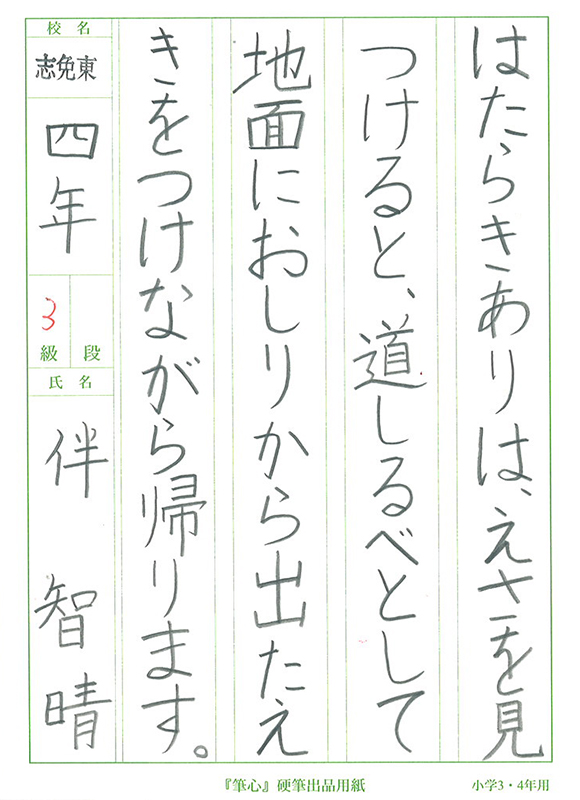 はたらきありは、えさを見
つけると、道しるべとして
地面におしりから出たえ
きをつけながら帰ります。
校名
志免東
四年
3
級段
氏名
伴智晴
『筆心』硬筆出品用紙
小学3・4年用